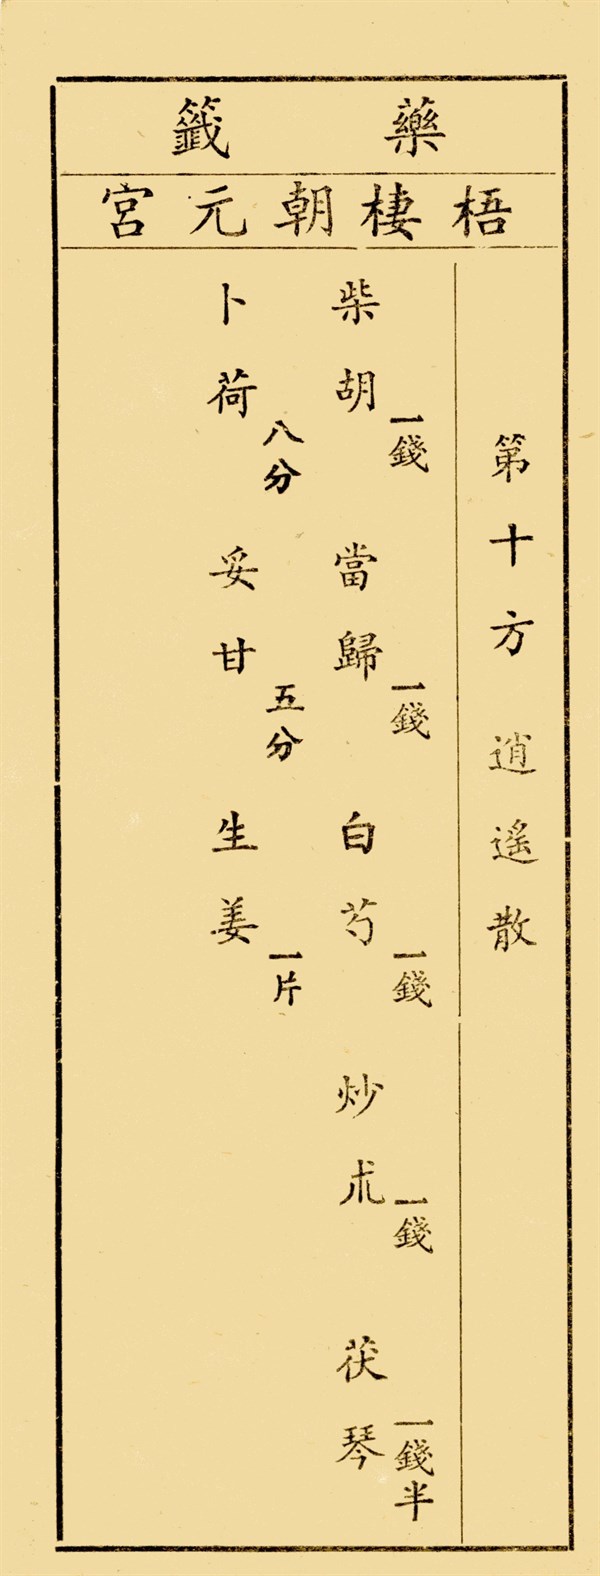 藥籤
梧棲朝元宮
第十方 逍遙散
柴胡一錢 當歸一錢 白芍一錢 炒朮一錢 茯琴一錢半
卜荷八分 妥甘五分 生姜一片